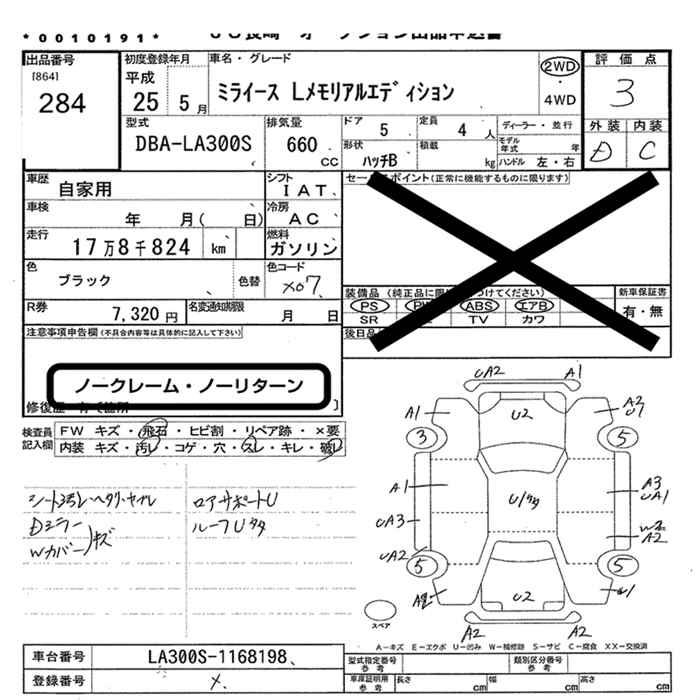 *0010191*
出品番号
[864]
284
初度登録年月
平成
25 5月
車名・グレード
ミライース Lメモリアルエディション
2WD
・
4WD
評価点
3
外装 内装
D C
型式
DBA-LA300S
排気量
660
cc
ドア 5
定員 4人
ディーラー・並行
モデル年式 年
形状
ハッチB
積載 kg
ハンドル 左・右
車歴
自家用
シフト
IAT
車検
年 月( 日)
冷房
AC
走行
17万8千824 km
燃料
ガソリン
色
ブラック
色替
色コード
X07
R券
7,320円
名変通知期限
月 日
セールスポイント(正常に機能するものに限ります)
装備品
(純正品に限
つけてください)
PS ABS エアB
SR TV カワ
新車保証書
有・無
後日品
注意事項申告欄(不具合内容等は具体的に記入して下さい)
ノークレーム・ノーリターン
修復歴
検査員
記入欄
FW キズ・飛石・ヒビ割・リペア跡・×要
内装 キズ・汚レ・コゲ・穴・スレ・キレ・破レ
ロアサポートU
ルーフUタ
Dミラー
Wカバー キズ
UA2 A1
A1 U2 A2
U7
3 5
A1 U/タ A3
UA1
UA3 W2
A2
UA2
5 5
A2 U2 U1
A2 A2
スペア
A-キズ E-エクボ U-凹み W-補修跡 S-サビ C-腐食 XX-交換済
車台番号
LA300S-1168198
登録番号
型式指定番号
参考
類別区分番号
参考
車庫証明用
参考
長さ cm
幅 cm
高さ cm